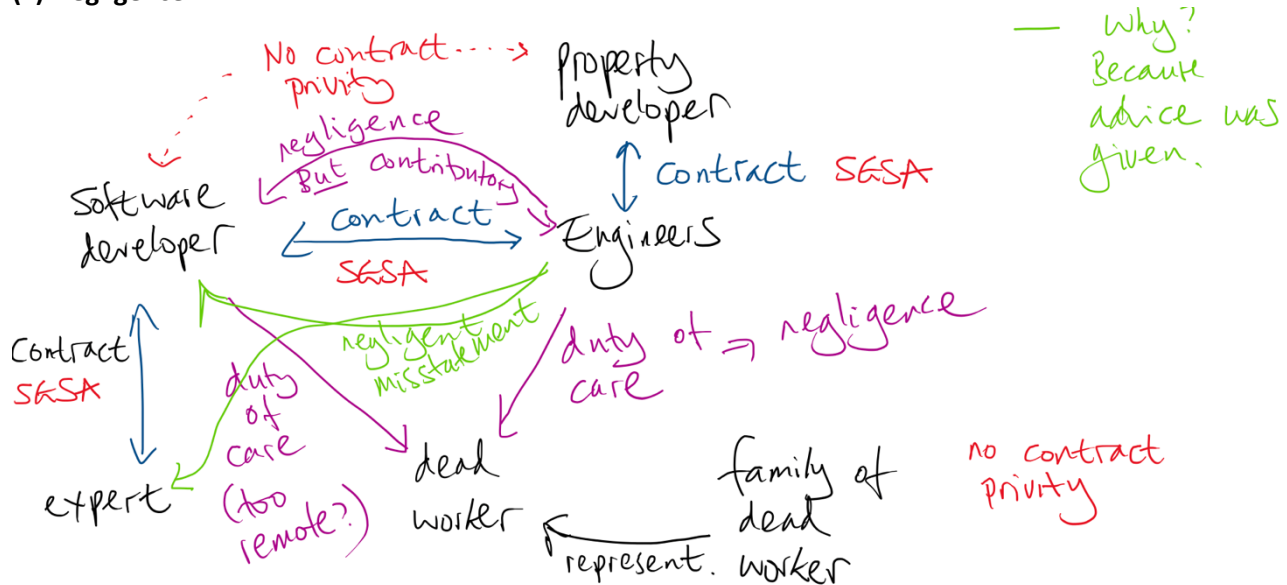 No contract
privity
Property
developer
Why?
Because
advice was
given.
negligence
But contributory
contract SGSA
Software
developer
contract
SGSA
Engineers
contract
SGSA
negligent
misstatement
duty of → negligence
care
duty
of
care
(too
remote?)
expert
dead
worker
represent.
family of
dead
worker
no contract
privity